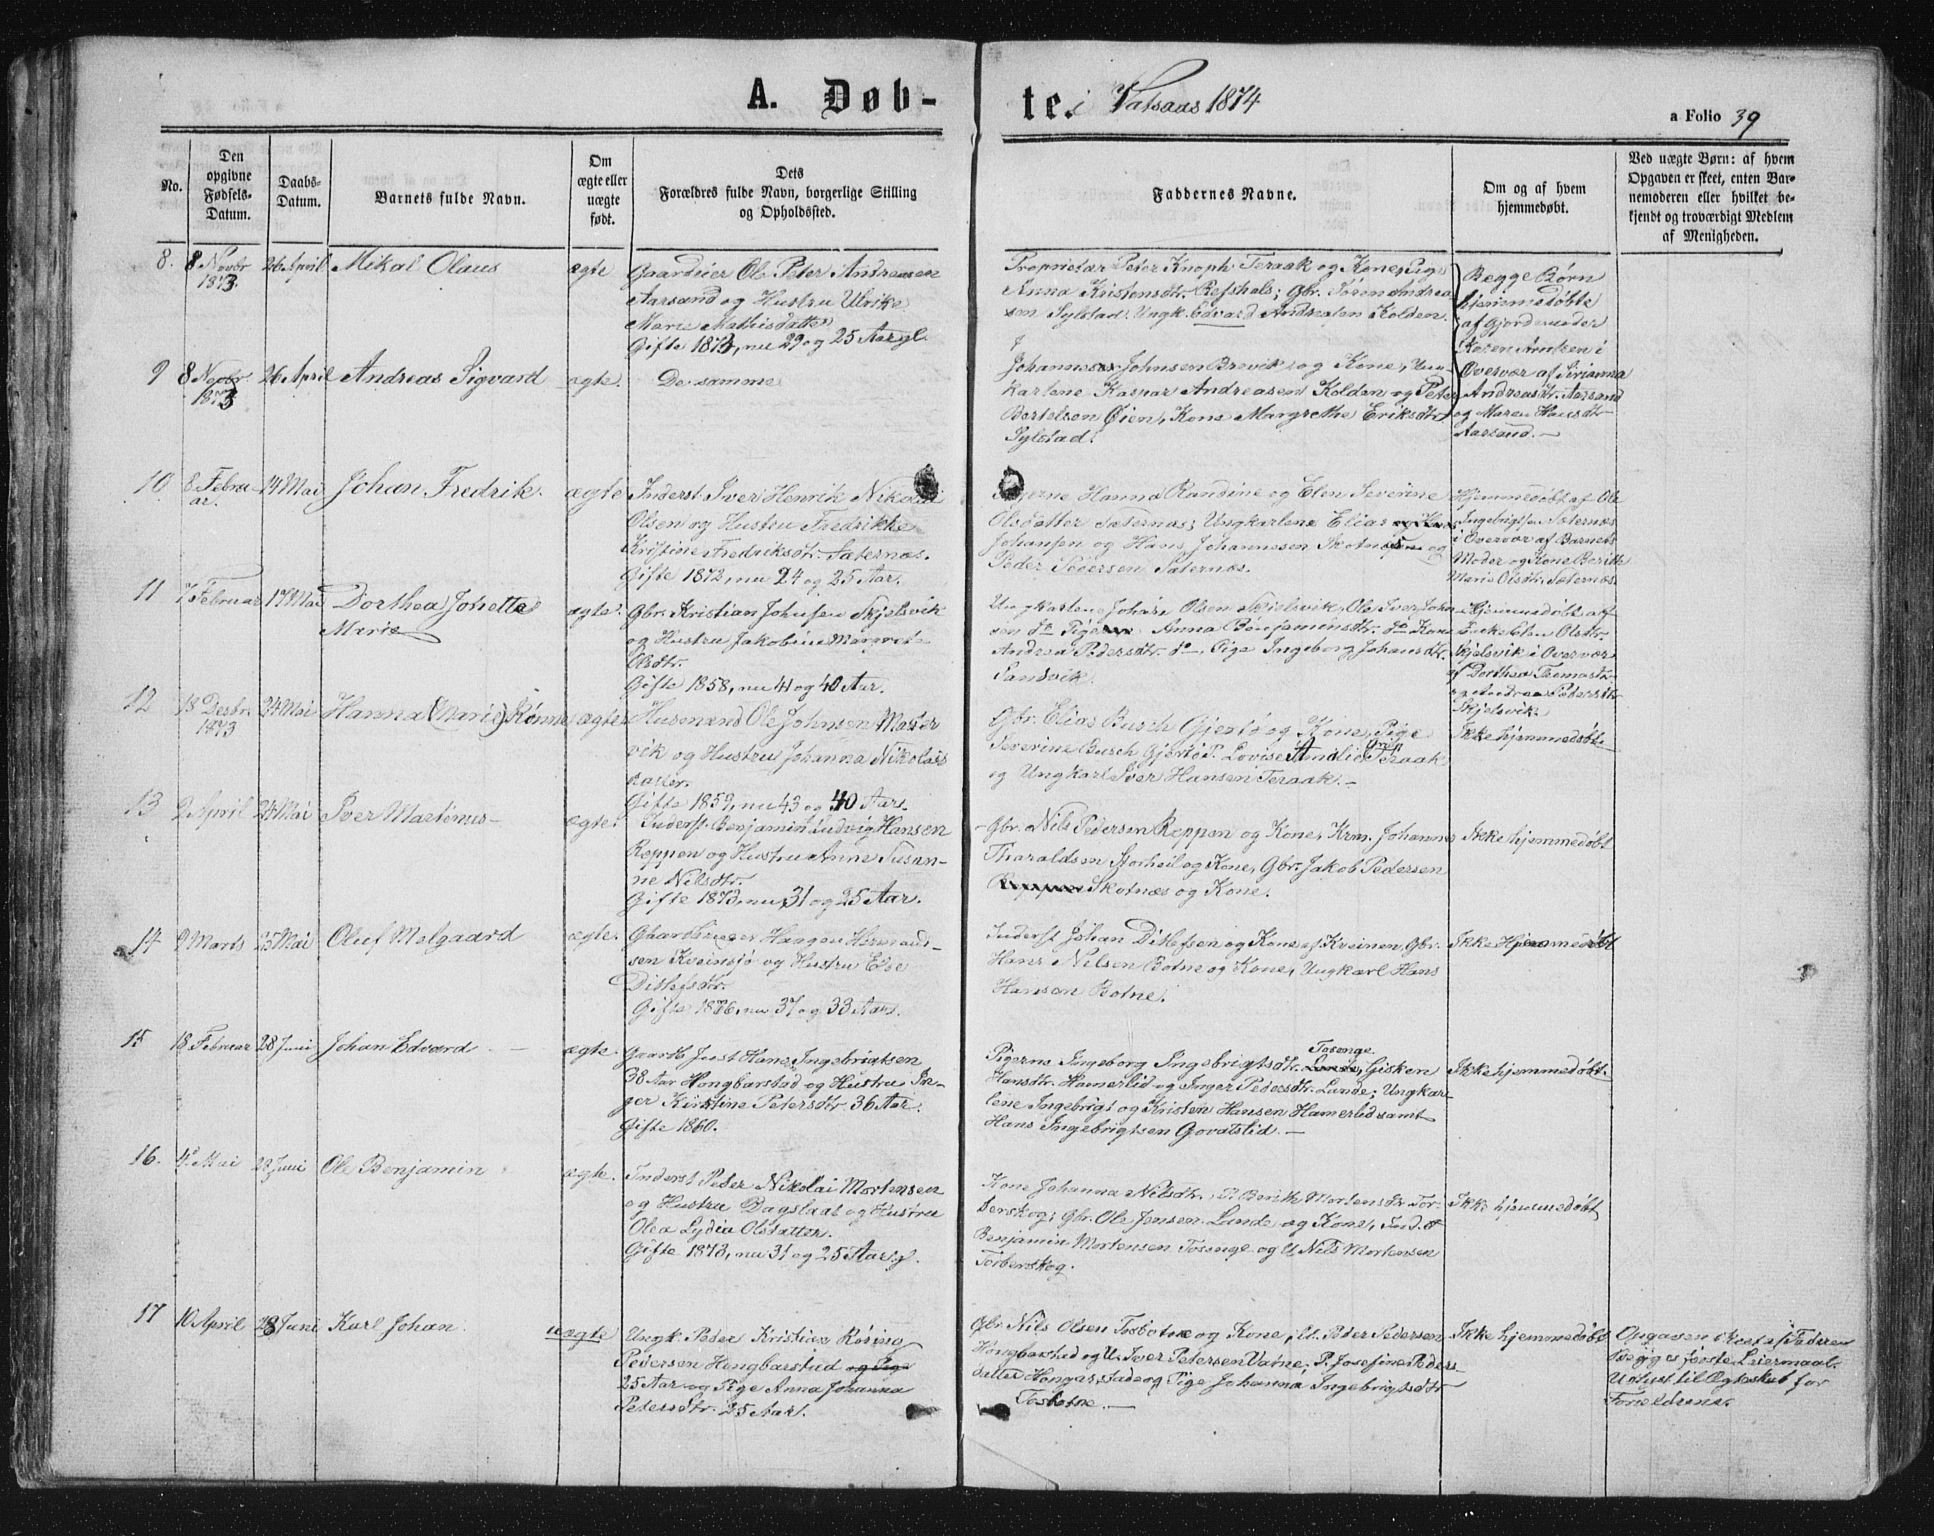 A. Døb-
te. i Vatsaas 1874
a Folio 39
No.
Den opgivne Fødsels-Datum.
Daabs-Datum.
Barnets fulde Navn.
Om ægte eller uægte født.
Dets Forældres fulde Navn, borgerlige Stilling og Opholdssted.
Faddernes Navne.
Om og af hvem hjemmedøbt.
Ved uægte Børn: af hvem Opgaven er skeet, enten Barnemoderen eller hvilket bekjendt og troværdigt Medlem af Menigheden.
8. 8 Novbr 1873. 26 April Mikal Olaus ægte
Gaardeier Ole Peter Andreasen
Aarsand og Hustru Ulrike
Marie Mathisdatter
Gifte 1873, nu 29 og 25 Aar gl.
Proprietær Peter Knoph Teraak og Kone, Pige
Anna Kristensdtr. Refshals; Gbr. Søren Andrea-
sen Sylstad. Ungk. Edvard Andreasen Kolden.
Begge Børn
hjemmedøbte
af Gjordemoder
Karen Arntzen i
Overvær af Sirianna
Andreasdtr. Aarsand
og Maren Hansdtr
Aarsand.
9 8 Novbr. 1873 26 April Andreas Sigvard ægte. De samme
Johannes Johnsen Brevik og Kone, Ung-
karlene Kaspar Andreasen Kolden og Peter
Bertelsen Øien, Kone Margrethe Eriksdtr.
Sylstad.
10 8 Februar. 14 Mai Johan Fredrik. ægte
Inderst Iver Henrik Nikolai
Olsen og Hustru Fredrikke
Kristine Fredriksdtr. Sæternæs.
Gifte 1872, nu 24 og 25 Aar.
Pigerne Hanna Randine og Elen Severine
Olsdatter Sæternæs; Ungkarlene Elias og Hans
Johansen og Hans Johannesen Skotnæs og
Peder Pedersen Sæternæs.
Hjemmedøbt af Ole
Ingebrigtsen Sæternæs
i Overvær af Barnets
Moder og Kone Berith
Marie Olsdtr. Sæternæs.
11 7 Februar 14 Mai Dorthea Jonette
Marie
ægte.
Gbr. Kristian Johnsen Skjelsvik
og Hustru Jakobine Margrete
Olsdtr.
Gifte 1858, nu 41 og 40 Aar.
Ungkarlene Johan Olsen Skjelsvik, Ole Iver Johan-
sen do Pige Anna Benjaminsdtr. do Kone
Andrea Pedersdtr. do, Pige Ingeborg Johansdtr.
Sandvik.
Hjemmedøbt af
Olsdtr.
Skjelsvik i Overvær
af Dorthea Thomasdtr.
og Andrea Pedersdtr.
Skjelsvik.
12 18 Desbr. 1873 24 Mai Hanna (Marie) Rønna ægte
Husmand Ole Johnsen Møster
vik og Hustru Johanna Nikolais
datter.
Gifte 1859, nu 43 og 40 Aar.
Gbr. Elias Busch Gjertø og Kone, Pige
Severine Busch Gjertø P. Lovise Amalie Grøn Teraak
og Ungkarl Iver Hansen Teraak.
Ikke hjemmedøbt.
13 2 April 24 Mai Iver Martinus ægte.
Inderst Benjamin Ludvig Hansen
Reppen og Hustru Anne Susan-
ne Nilsdtr.
Gifte 1873, nu 31 og 25 Aar.
Gbr. Nils Pedersen Reppen og Kone, Krm. Johannes
Tharaldsen Storheil og Kone, Gbr. Jakob Pedersen
Skotnæs og Kone.
Ikke hjemmedøbt
14 9 Marts 25 Mai Oluf Melgaard ægte.
Gaardbruger Haagen Hermand-
sen Kveinsjø og Hustru Else
Ditlefsdtr.
Gifte 1876, nu 37 og 33 Aar.
Inderst Johan Ditlefsen og Kone af Kveinen, Gbr.
Hans Nilsen Botne og Kone, Ungkarl Hans
Hansen Botne.
Ikke Hjemmedøbt
15 18 Februar 28 Juni Johan Edvard ægte.
Gaardb. Just Hans Ingebrigtsen
38 Aar Hongbarstad og Hustru In-
ger Kirstine Petersdtr 36 Aar.
Gifte 1860.
Pigerne Ingeborg Ingebrigtsdtr. Lande Tosenge, Gisken
Hansdtr. Hamerlid og Inger Pedersdtr. Lande; Ungkar-
lene Ingebrigt og Kristen Hansen Hamerlid samt
Hans Ingebrigtsen Govatslid.
Ikke hjemmedøbt.
16. 4de Mai 28 Juni Ole Benjamin ægte.
Inderst Peter Nikolai Mortensen
og Hustru Bagslaat og Hustru
Olea Lydia Olsdatter.
Gifte 1873, nu 31 og 25 Aar g.
Kone Johanna Nilsdtr., P. Berith Mortensdtr. Tor-
berskog; Gbr. Ole Jensen Lande og Kone, Ind.st
Benjamin Mortensen Tosenge og U. Nils Mortensen
Torberskog.
Ikke hjemmedøbt
17 10 April 28 Juni Karl Johan. uægte
Ungk. Peder Kristian Rosing
Pedersen Hongbarstad og Pige
25 Aar og Pige Anna Johanna
Petersdtr. 25 Aar.
Gbr. Nils Olsen Tosbotne og Kone, U. Peder Pedersen
Hongbarstad og U. Iver Petersen Varne, P. Josefine Peders-
datter Hongbarstad og Pige Johanna Ingebrigtsdtr
Tosbotne.
Ikke hjemmedøbt
Opgaven skeet af Faderen
Begges første Leiermaal.
Udlyst til Ægteskab for
Forældrene.